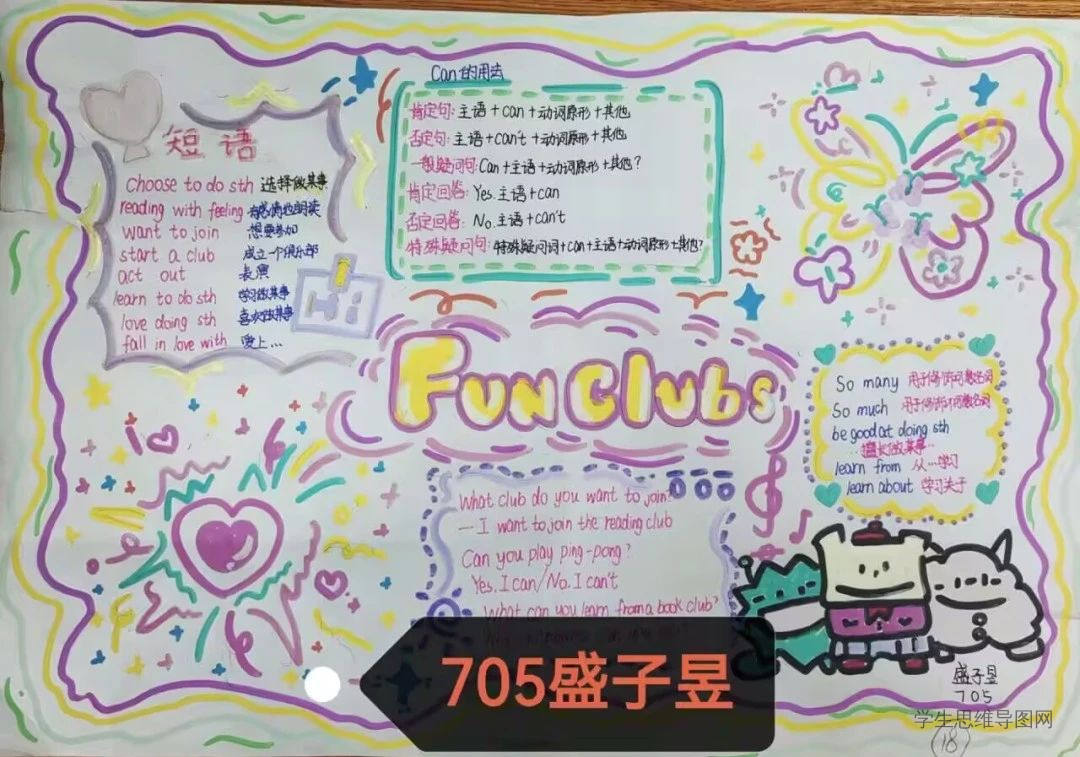 短语
choose to do sth 选择做某事
reading with feeling 有感情地朗读
want to join 想要参加
start a club 成立一个俱乐部
act out 表演
learn to do sth 学习做某事
love doing sth 喜欢做某事
fall in love with 爱上...
Can的用法
肯定句: 主语+can+动词原形+其他
否定句: 主语+can't+动词原形+其他
一般疑问句: Can+主语+动词原形+其他?
肯定回答: Yes. 主语+can
否定回答: No. 主语+can't
特殊疑问句: 特殊疑问词+can+主语+动词原形+其他?
Fun Clubs
So many 用于修饰可数名词
So much 用于修饰不可数名词
be good at doing sth
...擅长做某事...
learn from 从...学习
learn about 学习关于
What club do you want to join?
—I want to join the reading club
Can you play ping-pong?
Yes, I can/No. I can't
What can you learn from a book club?
705盛子昱
盛子昱
705
学生思维导图网
18